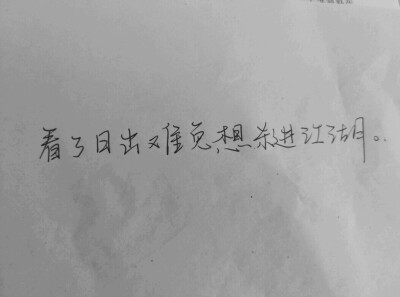 看了日出难免想杀进江湖。